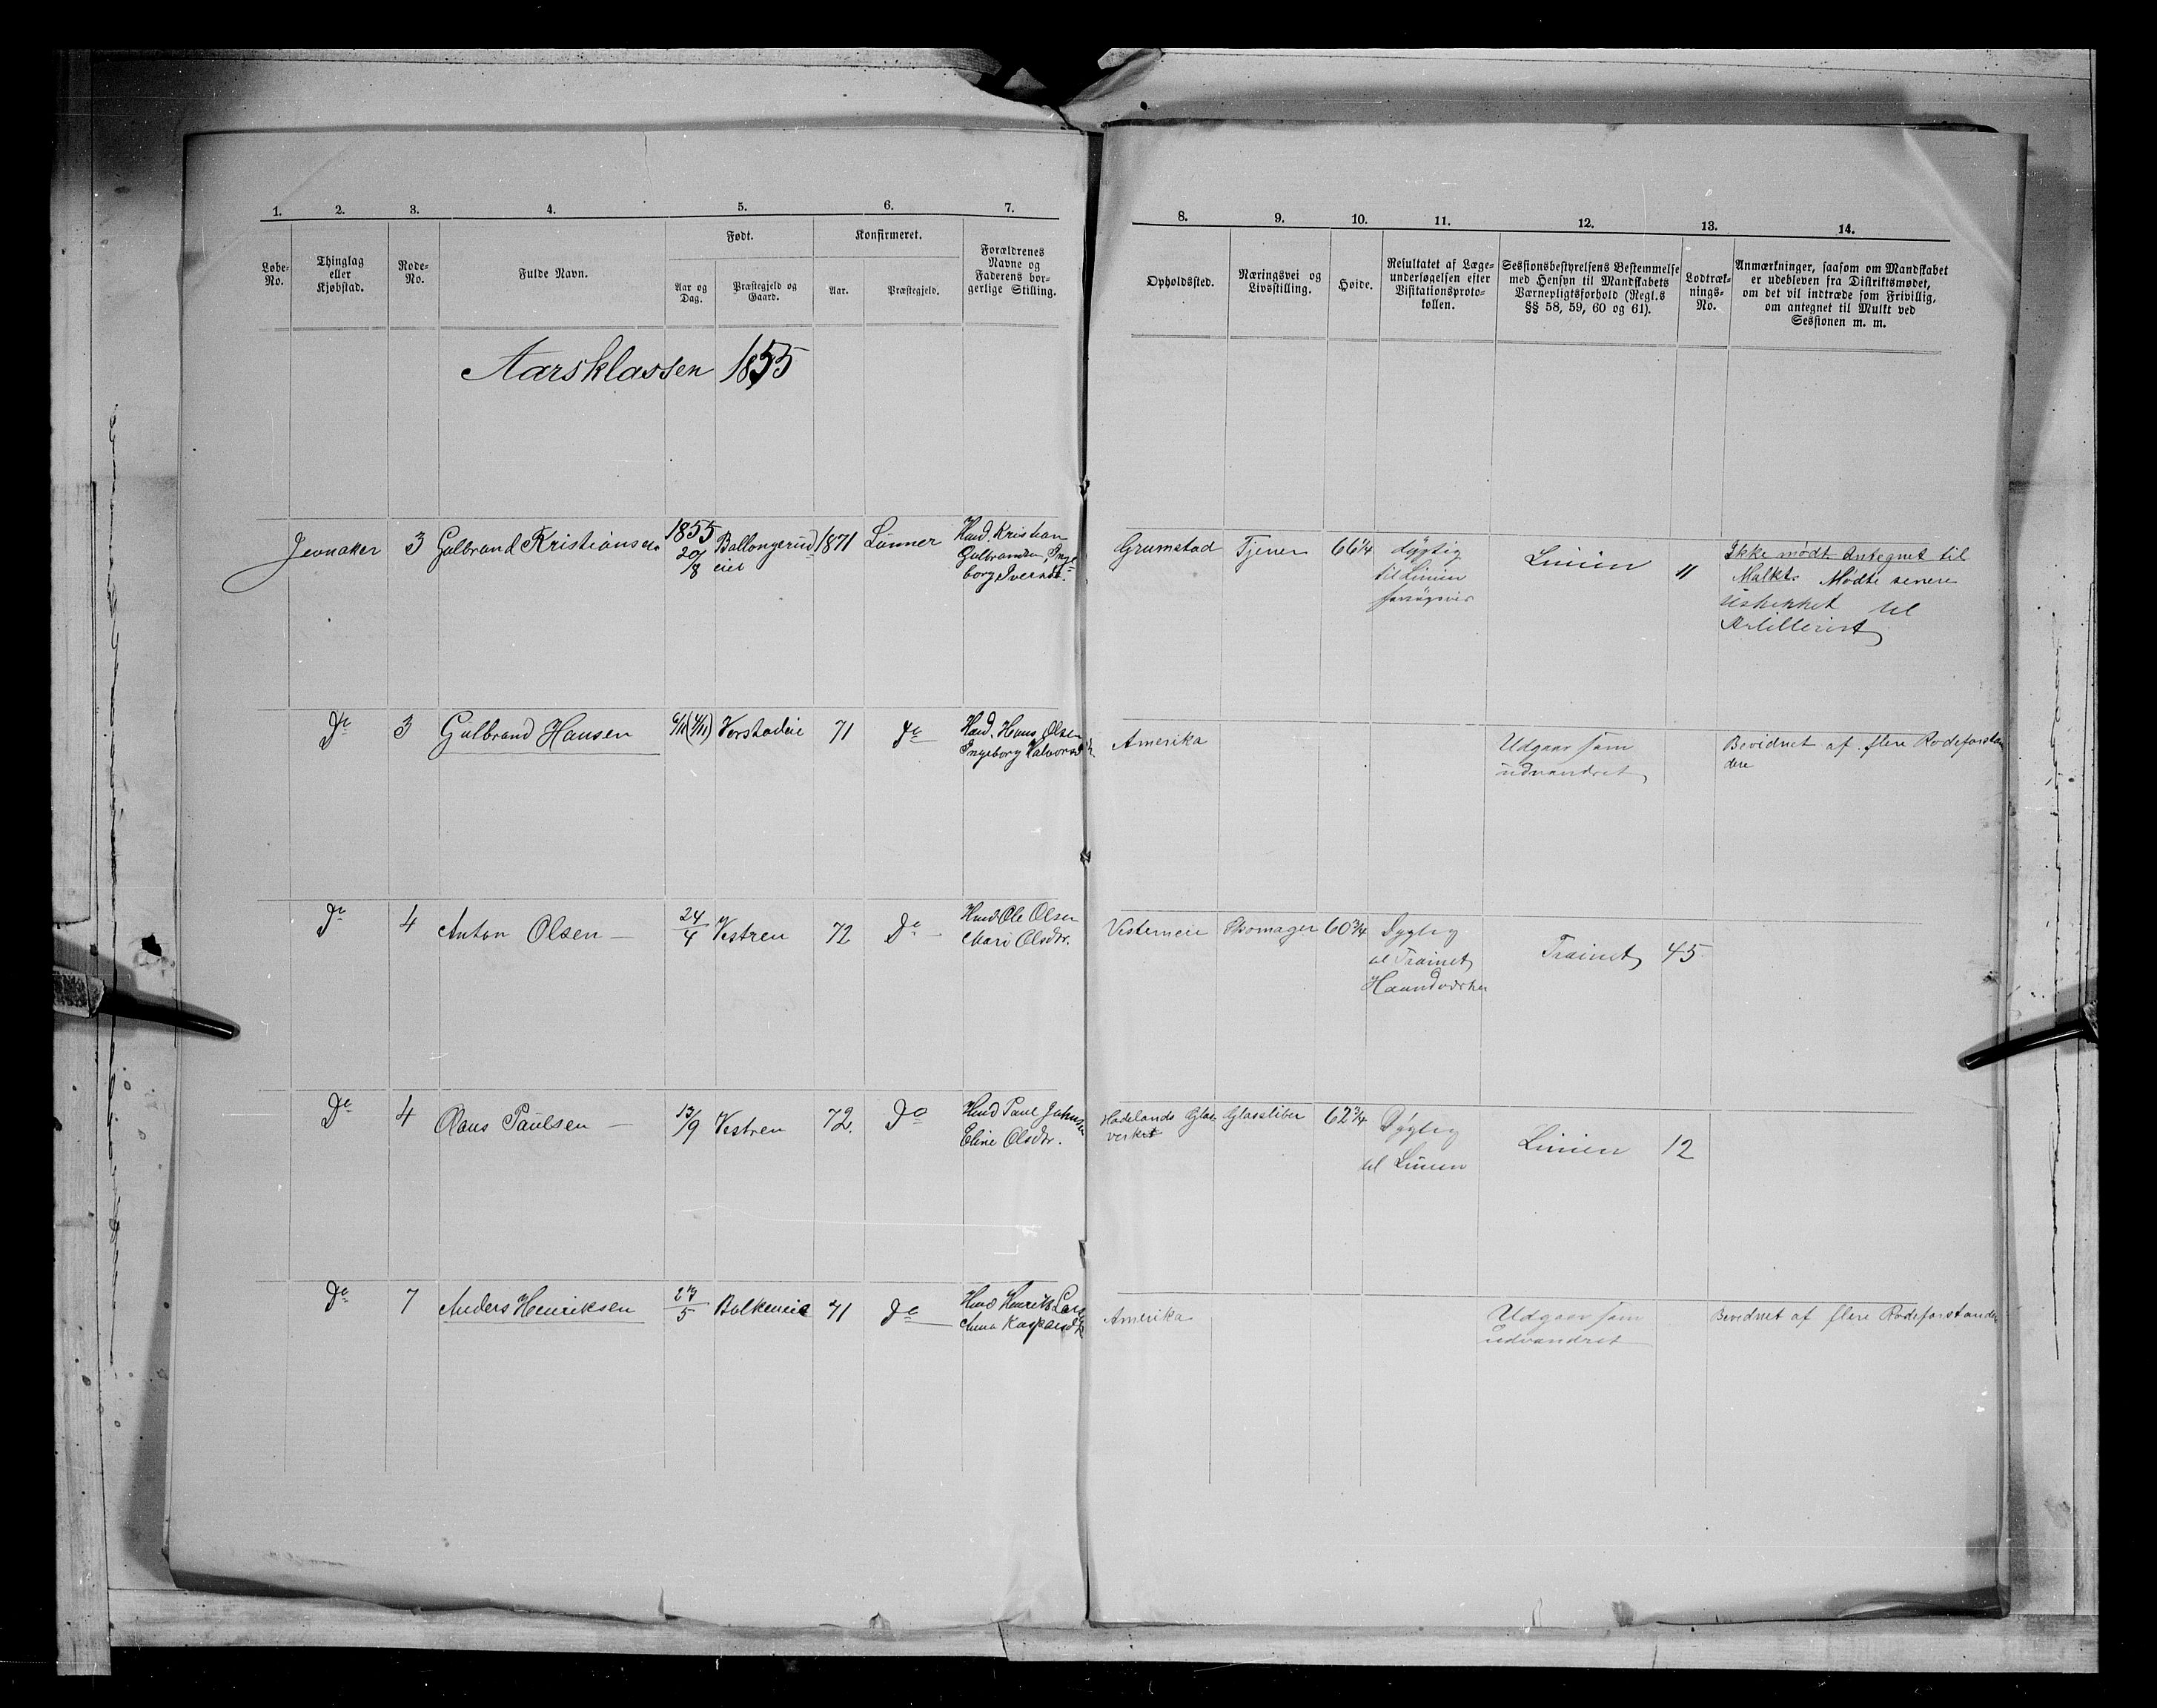 1. 2. 3. 4. 5. 6. 7. 8. 9. 10. 11. 12. 13. 14.
Løbe-
No.
Thinglag
eller
Kjøbstad.
Rode-
No.
Fulde Navn.
Født.
Aar og
Dag.
Præstegjeld og
Gaard.
Konfirmeret.
Aar.
Præstegjeld.
Forældrenes
Navne og
Faderens bor-
gerlige Stilling.
Opholdssted.
Næringsvei og
Livsstilling.
Høide.
Resultatet af Læge-
undersøgelsen efter
Visitationsproto-
kollen.
Sessionsbestyrelsens Bestemmelse
med Hensyn til Mandskabets
Værnepligtsforhold (Regl.s
§§ 58, 59, 60 og 61).
Lodtræk-
nings-
No.
Anmærkninger, saasom om Mandskabet
er udebleven fra Distriktsmødet,
om det vil indtræde som Frivillig,
om antegnet til Mulkt ved
Sessionen m. m.
Aarsklassen 1855
Jevnaker
3
Gulbrand Kristiansen
1855
20/8
Ballongerud
eiet
1871
Lunner
Husd. Kristian
Gulbrandsen, Inge-
borg Iversdt.
Grumstad
Tjener
66 1/4
dygtig
til Linien
Linien
11
Ikke mødt Antegnet til
Mulkt. Mødte senere
Udskikket til
Artilleriet
Do
3
Gulbrand Hansen
6/11 (4/11)
Vorstadeie
71
Do
Husd. Hans Olsen
Ingeborg Halvorsd
Amerika
Udgaar som
udvandret
Bevidnet af flere Rodeforstan
dere
Do
4
Anton Olsen
24/4
Vestren
72
Do
Husd. Ole Olsen
Mari Olsdr.
Vesterneie
Skomager
60 3/4
Dygtig
til Trainet
Haandværker
Trainet
45
Do
4
Olaus Paulsen
13/9
Vestren
72.
Do
Husd Paul Johnsen
Eline Olsdr.
Hadelands Glas
verket
Glassliber
62 3/4
Dygtig
til Linien
Linien
12
Do
7
Anders Henriksen
27/5
Balkeneie
71
Do
Husd Henrik Lars
Anna Kaspersd
Amerika
Udgaar som
udvandret
Bevidnet af flere Rodeforstander